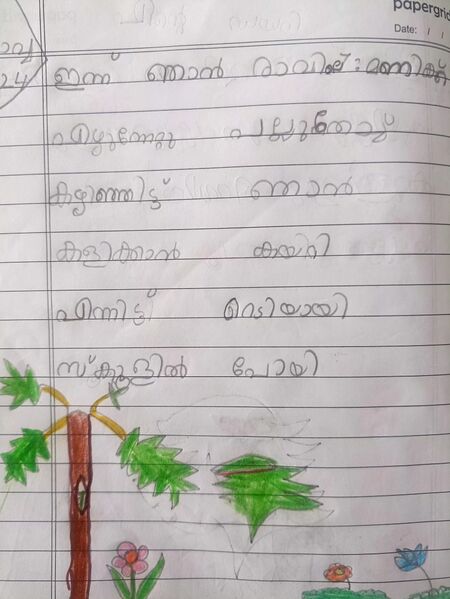 papergrid
Date: / /
ഇന്ന് ഞാൻ രാവിലെ : മണിക്ക്
എഴുന്നേറ്റു പല്ലുതേച്ച്
കഴിഞ്ഞിട്ട് ഞാൻ
കളിക്കാൻ കയറി
എന്നിട്ട് റെടിയായി
സ്കൂളിൽ പോയി